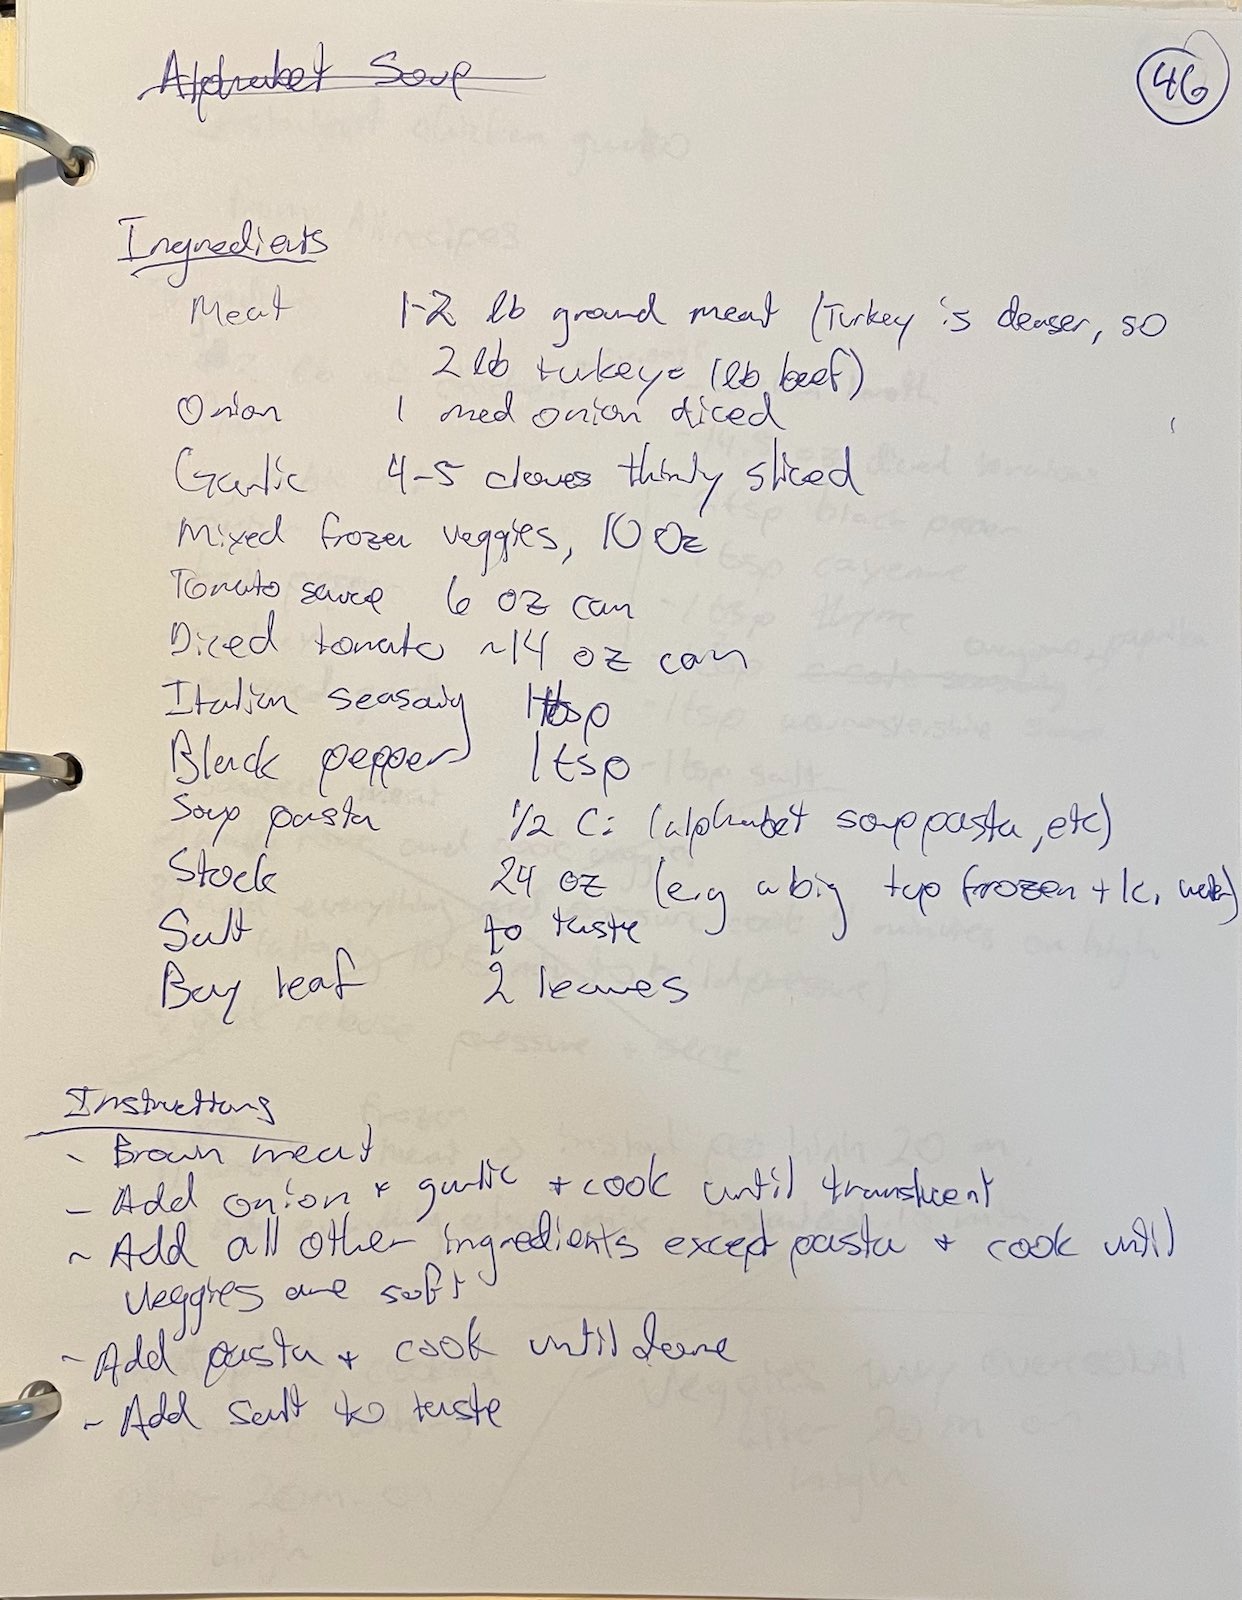 Alphabet Soup
46
Ingredients
Meat 1-2 lb ground meat (Turkey is denser, so
2 lb turkey = 1 lb beef)
Onion 1 med onion diced
Garlic 4-5 cloves thinly sliced
Mixed frozen veggies, 10 oz
Tomato sauce 6 oz can
Diced tomato ~14 oz can
Italian seasoning 1 tbsp
Black pepper 1 tsp
Soup pasta 1/2 c. (alphabet soup pasta, etc)
Stock 24 oz (e.g a big tup frozen + 1c. water)
Salt to taste
Bay leaf 2 leaves
Instructions
- Brown meat
- Add onion + garlic + cook until translucent
- Add all other ingredients except pasta + cook until
veggies are soft
- Add pasta + cook until done
- Add salt to taste